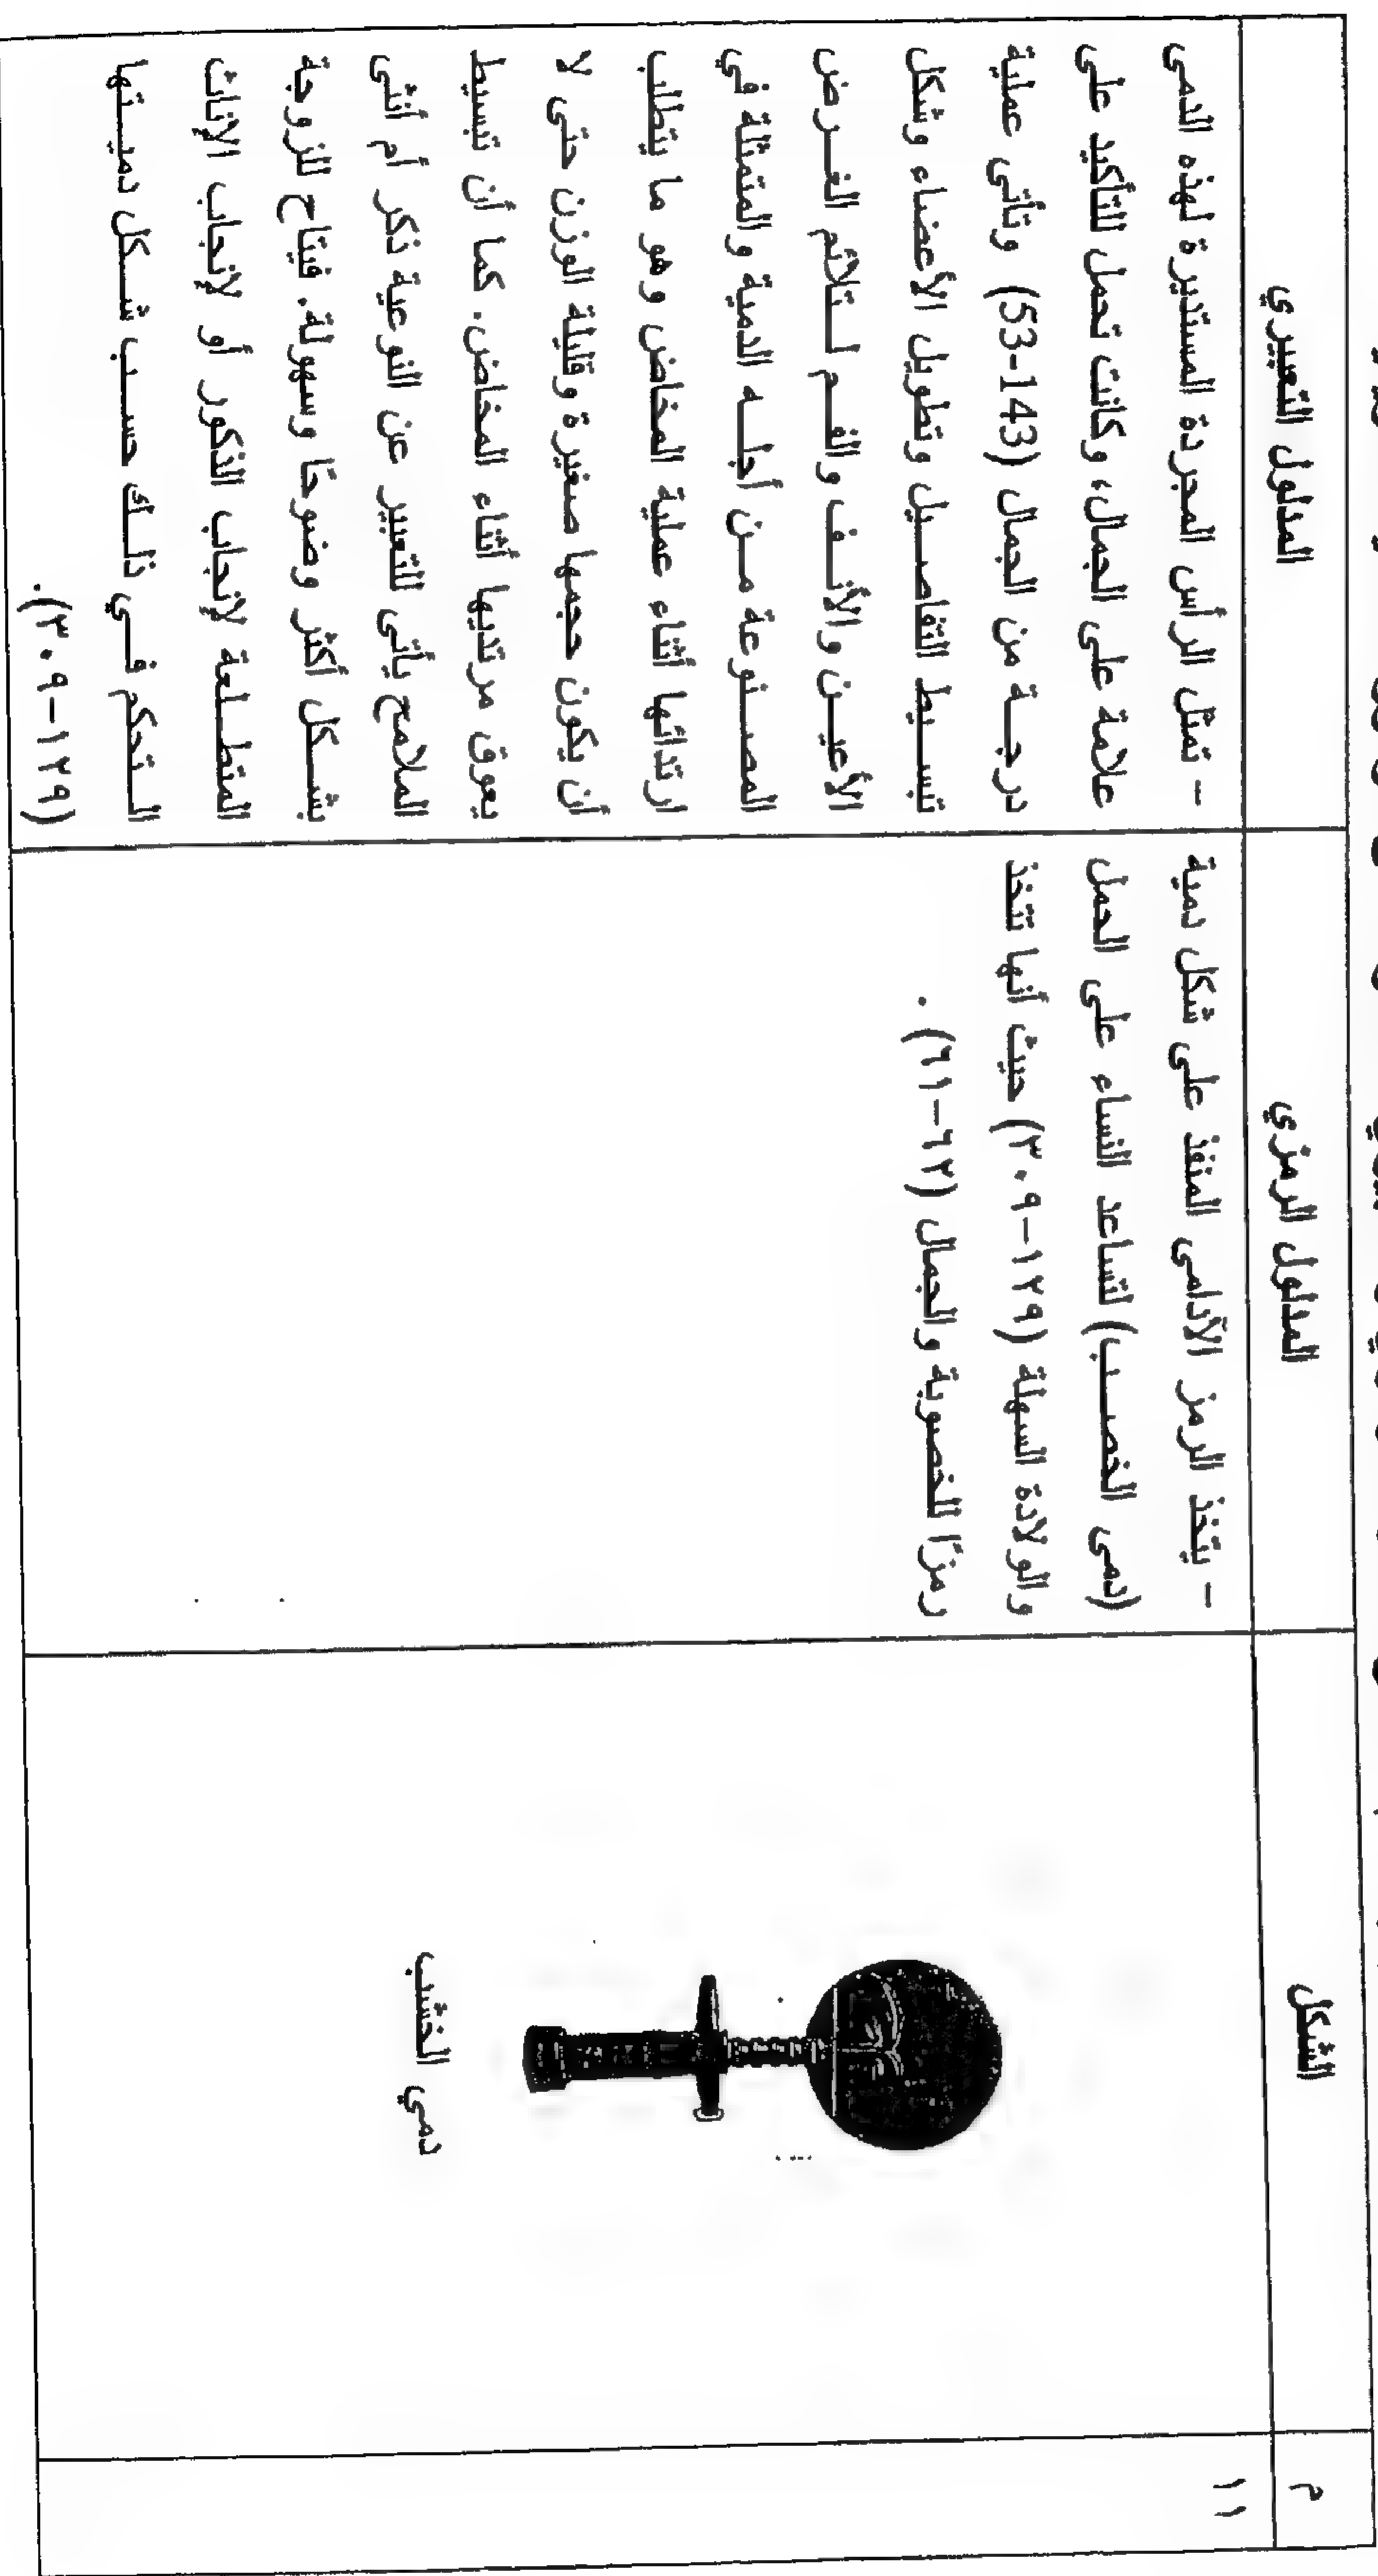 م
الشكل
المدلول الرمزي
المدلول التعبيري
١١
دمي الخشب
- يتخذ الرمز الآدامى المنفذ على شكل دمية
(دمى الخصب) لتساعد النساء على الحمل
والولادة السهلة (١٢٩-٣٠٩) حيث أنها تتخذ
رمزًا للخصوبة والجمال (٦٢-٦١).
- تمثل الرأس المجردة المستديرة لهذه الدمى
علامة على الجمال، وكانت تحمل للتأكيد على
درجة من الجمال (143-53) وتأتى عملية
تبسيط التفاصيل وتطويل الأعضاء وشكل
الأعين والأنف والفم لتلائم الغرض
المصنوعة من أجله الدمية والمتمثلة في
ارتدائها أثناء عملية المخاض وهو ما يتطلب
أن يكون حجمها صغيرة وقليلة الوزن حتى لا
يعوق مرتديها أثناء المخاض. كما أن تبسيط
الملامح يأتى للتعبير عن النوعية ذكر أم أنثى
بشكل أكثر وضوحًا وسهولة. فيتاح للزوجة
المتطلعة لإنجاب الذكور أو لإنجاب الإناث
التحكم في ذلك حسب شكل دميتها
(١٢٩-٣٠٩).